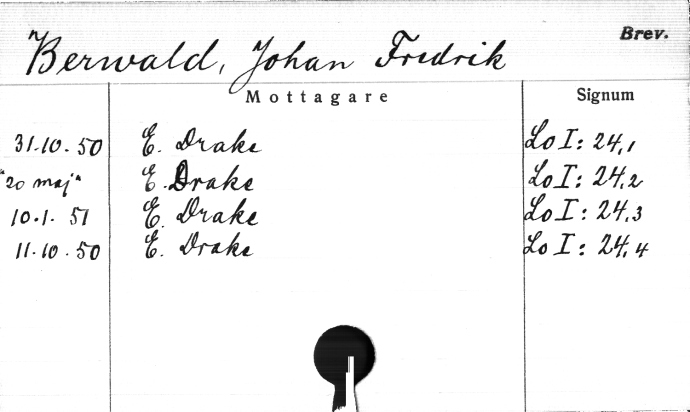 Berwald, Johan Fredrik Brev.
Mottagare Signum
31.10.50 E. Drake Lo I: 24,1
"20 maj" E. Drake Lo I: 24.2
10.1. 51 E. Drake Lo I: 24.3
11.10.50 E. Drake Lo I: 24.4